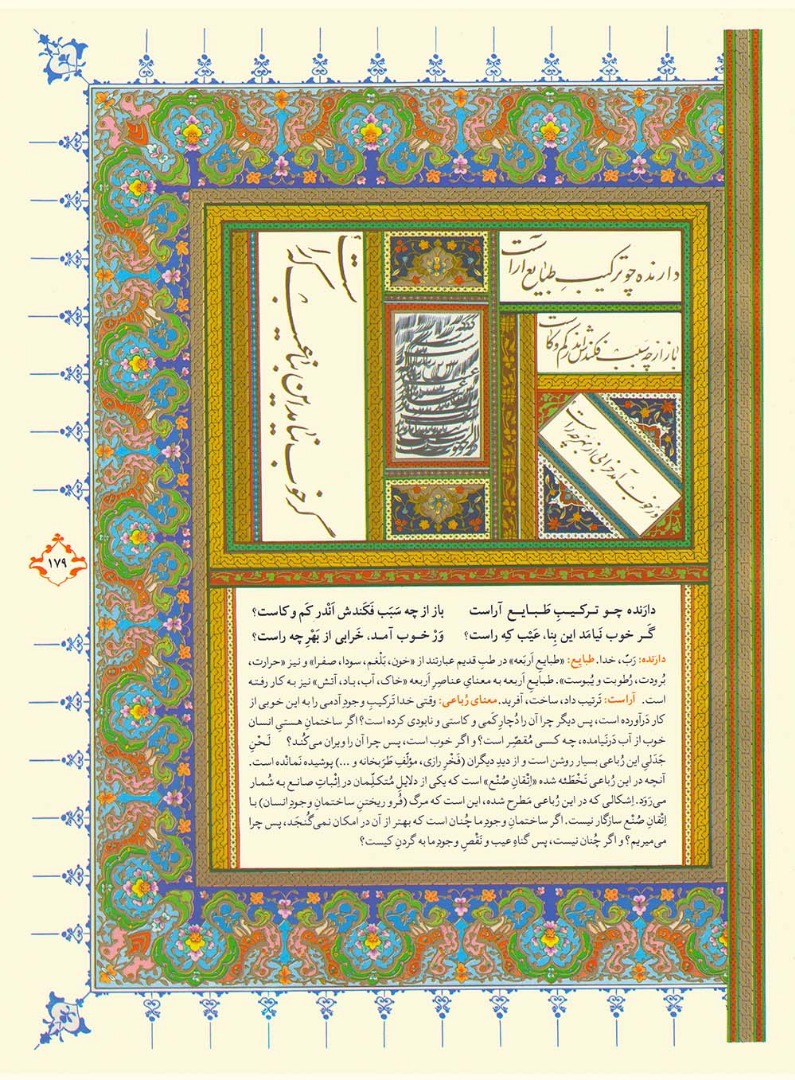 دارنده چو ترکیبِ طبایع آراست
باز از چه سبب فکندش اندر کم و کاست
ور خوب آمد خرابی از بهر چه راست
گر خوب نیامد این بنا عیب کراست
۱۷۹
دارَنده چو ترکیبِ طَبایع آراست باز از چه سَبَب فَکَندش اَنْدر کَم و کاست؟
گَر خوب نَیامَد این بِنا، عَیْب کِه راست؟ وَرْ خوب آمد، خَرابی از بَهْرِ چه راست؟
دارَنده: رَبّ، خدا. طبایع: «طبایعِ اَربَعه» در طب قدیم عبارتند از «خون، بَلْغَم، سودا، صفرا» و نیز «حرارت،
بُرودت، رُطوبت و یُبوست». طبایعِ اَربعه به معنایِ عناصرِ اَربعه «خاک، آب، باد، آتش» نیز به کار رفته
است. آراست: تَرتیب داد، ساخت، آفرید. معنای رُباعی: وقتی خدا تَرکیبِ وجودِ آدمی را به این خوبی از
کار دَرآورده است، پس دیگر چرا آن را دُچارِ کَمی و کاستی و نابودی کرده است؟ اگر ساختمانِ هستیِ انسان
خوب از آب دَرنَیامده، چه کسی مُقصّر است؟ و اگر خوب است، پس چرا آن را ویران می‌کُند؟ لَحْنِ
جَدَلیِ این رُباعی بسیار روشن است و از دیدِ دیگران (فَخْرِ رازی، مؤلّفِ طَرَبخانه و ...) پوشیده نَمانْده است.
آنچه در این رُباعی تَخْطِئه شده «اِتْقانِ صُنْع» است که یکی از دلایلِ مُتکلّمان در اِثْباتِ صانع به شُمار
می‌رَوَد. اِشکالی که در این رُباعی مَطرح شده، این است که مرگ (فُرو ریختنِ ساختمانِ وجودِ انسان) با
اِتْقانِ صُنْع سازگار نیست. اگر ساختمانِ وجودِ ما چُنان است که بهتر از آن در امکان نمی‌گُنجَد، پس چرا
می‌میریم؟ و اگر چُنان نیست، پس گناهِ عیب و نَقْصِ وجودِ ما به گردنِ کیست؟